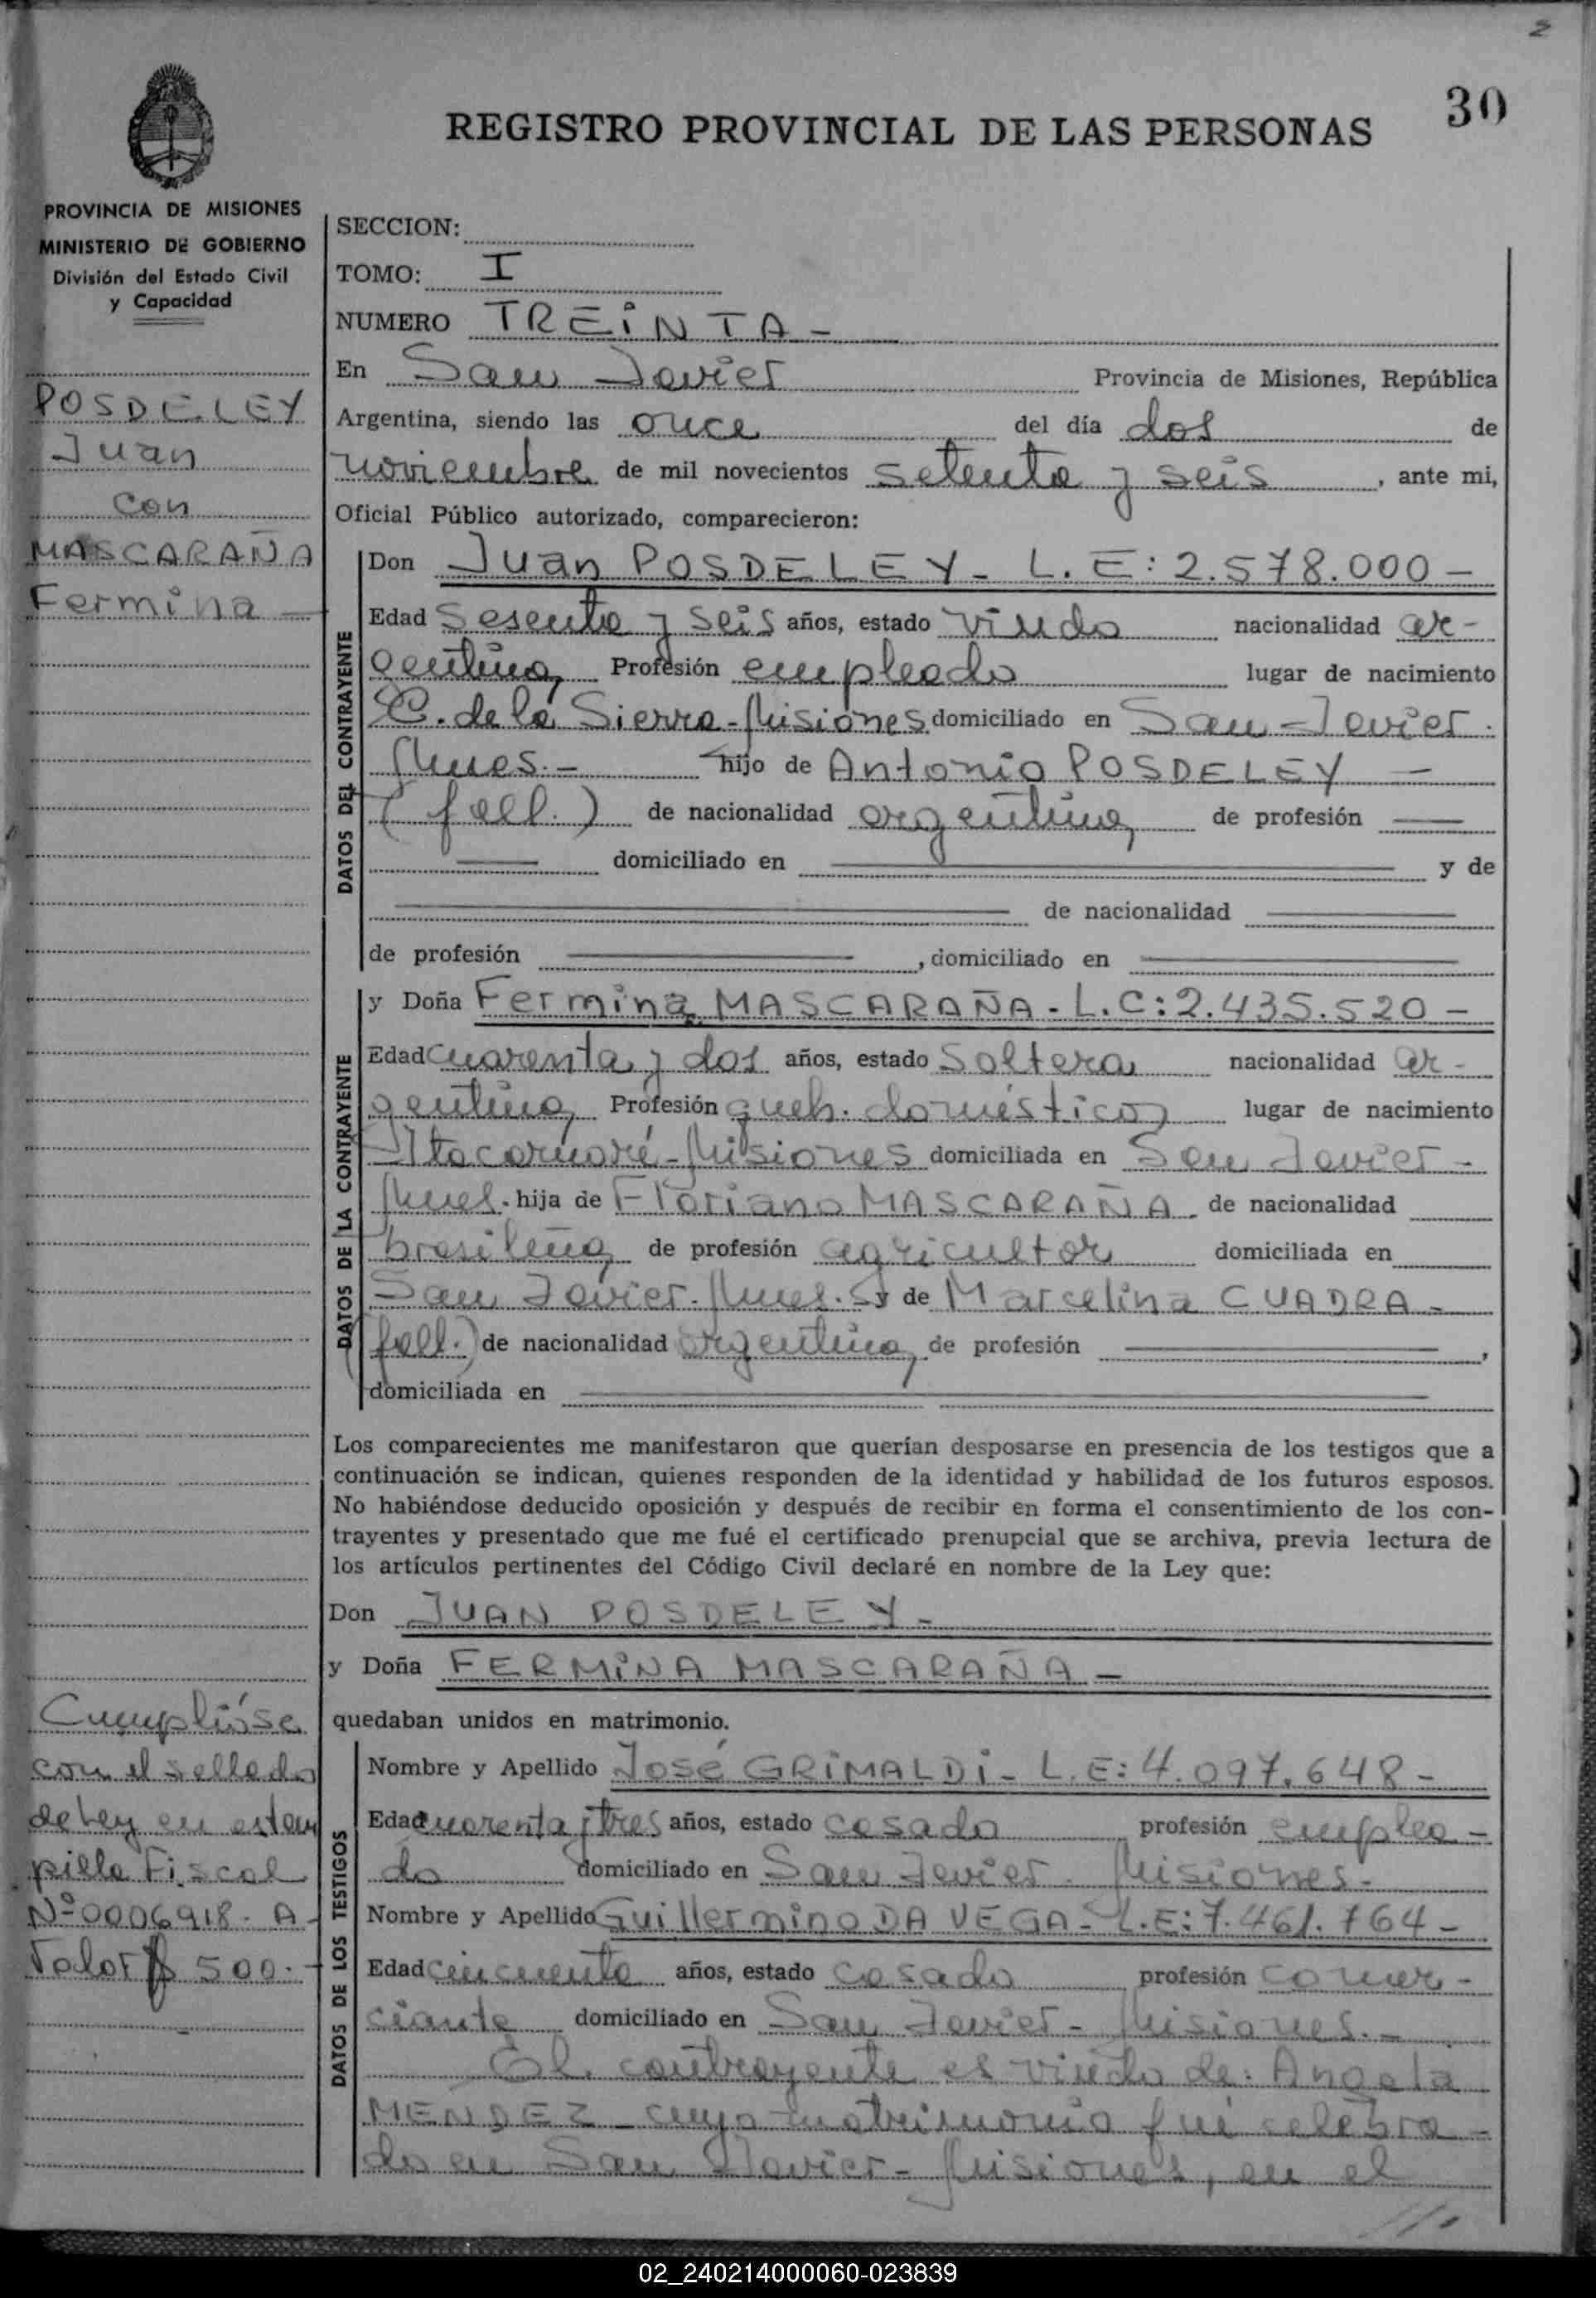 2
30
REGISTRO PROVINCIAL DE LAS PERSONAS
PROVINCIA DE MISIONES
MINISTERIO DE GOBIERNO
División del Estado Civil
y Capacidad
POSDELEY
Juan
con
MASCARAÑA
Fermina
SECCION:
TOMO: I
NUMERO TREINTA -
En San Javier Provincia de Misiones, República
Argentina, siendo las once del día dos de
noviembre de mil novecientos setenta y seis, ante mi,
Oficial Público autorizado, comparecieron:
DATOS DEL CONTRAYENTE
Don Juan POSDELEY - L.E: 2.578.000 -
Edad sesenta y seis años, estado viudo nacionalidad ar-
gentina, Profesión empleado lugar de nacimiento
C. de la Sierra - Misiones domiciliado en San Javier.
Mnes. - hijo de Antonio POSDELEY -
(fall.) de nacionalidad argentina, de profesión
domiciliado en y de
de nacionalidad
de profesión , domiciliado en
DATOS DE LA CONTRAYENTE
y Doña Fermina MASCARAÑA - L.C: 2.435.520 -
Edad cuarenta y dos años, estado soltera nacionalidad ar-
gentina, Profesión queh. domésticos lugar de nacimiento
Itacaruaré - Misiones domiciliada en San Javier -
Mnes. hija de Floriano MASCARAÑA de nacionalidad
brasileña de profesión agricultor domiciliada en
San Javier - Mnes. y de Marcelina CUADRA -
(fall.) de nacionalidad argentina, de profesión ,
domiciliada en
Los comparecientes me manifestaron que querían desposarse en presencia de los testigos que a
continuación se indican, quienes responden de la identidad y habilidad de los futuros esposos.
No habiéndose deducido oposición y después de recibir en forma el consentimiento de los con-
trayentes y presentado que me fué el certificado prenupcial que se archiva, previa lectura de
los artículos pertinentes del Código Civil declaré en nombre de la Ley que:
Don JUAN POSDELEY -
y Doña FERMINA MASCARAÑA -
quedaban unidos en matrimonio.
Cumplióse
con el sellado
de Ley en estam
pilla Fiscal
Nº 0006918 - A -
Valor $ 500.-
DATOS DE LOS TESTIGOS
Nombre y Apellido José GRIMALDI - L.E: 4.097.648 -
Edad cuarenta y tres años, estado casado profesión emplea-
do domiciliado en San Javier - Misiones -
Nombre y Apellido Guillermino DA VEGA - L.E: 7.461.764 -
Edad cincuenta años, estado casado profesión comer-
ciante domiciliado en San Javier - Misiones. -
El contrayente es viudo de: Angela
MENDEZ - cuyo matrimonio fué celebra-
do en San Javier - Misiones, en el
///.
02_240214000060-023839